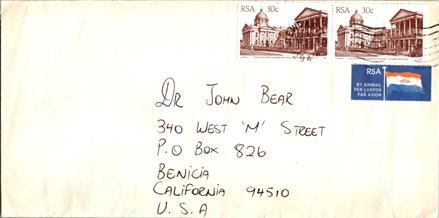 RSA 30c RSA 30c
RSA
BY AIRMAIL
PER LUGPOS
PAR AVION
DR JOHN BEAR
340 WEST 'M' STREET
P.O BOX 826
BENICIA
CALIFORNIA 94510
U.S.A